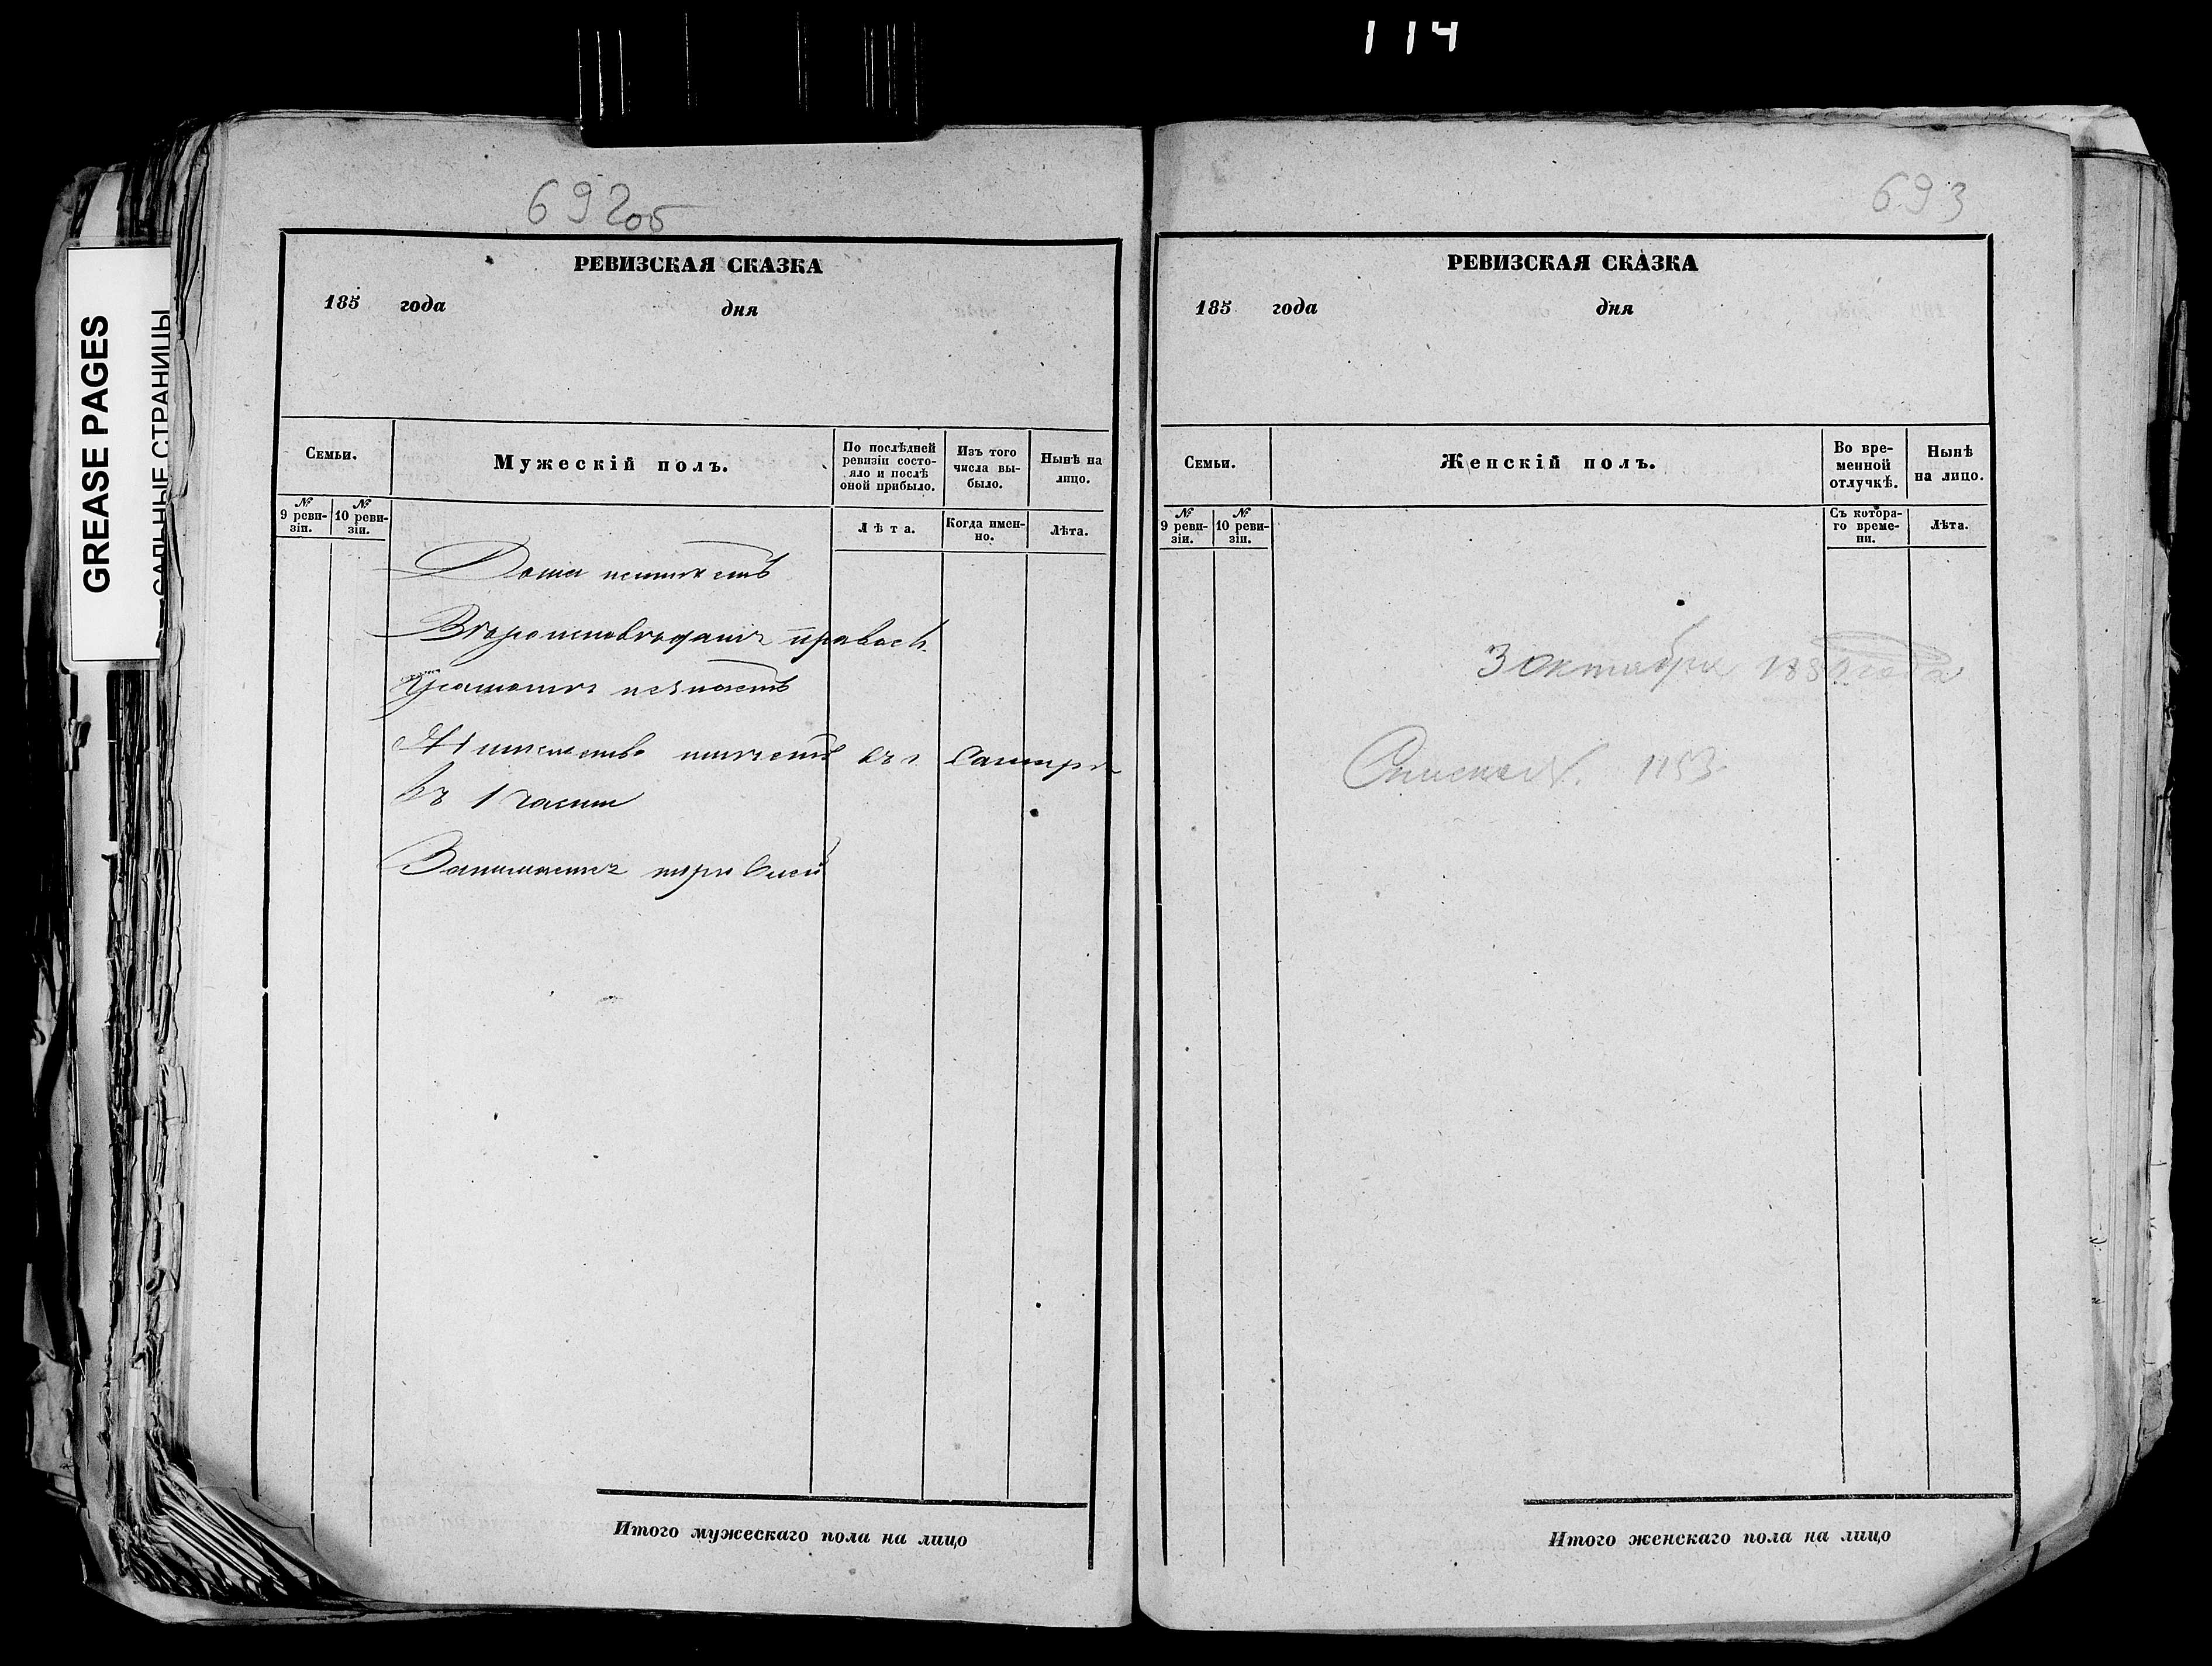 114
GREASE PAGES
САЛЬНЫЕ СТРАНИЦЫ
692об
РЕВИЗСКАЯ СКАЗКА
185 года дня
Семьи.
Мужескій полъ.
По послѣдней ревизіи состояло и послѣ оной прибыло.
Изъ того числа выбыло.
Нынѣ на лицо.
№ 9 ревизіи.
№ 10 ревизіи.
Лѣта.
Когда именно.
Лѣта.
Дома неимѣетъ
Вѣроисповѣданія правосл.
Грамоте незнаетъ
Жительство имѣетъ въ г. Самарѣ
въ 1 части
Занимается торговлей
Итого мужескаго пола на лицо
693
РЕВИЗСКАЯ СКАЗКА
185 года дня
Семьи.
Женскій полъ.
Во временной отлучкѣ.
Нынѣ на лицо.
№ 9 ревизіи.
№ 10 ревизіи.
Съ котораго времени.
Лѣта.
3 Октября года
1153
Итого женскаго пола на лицо